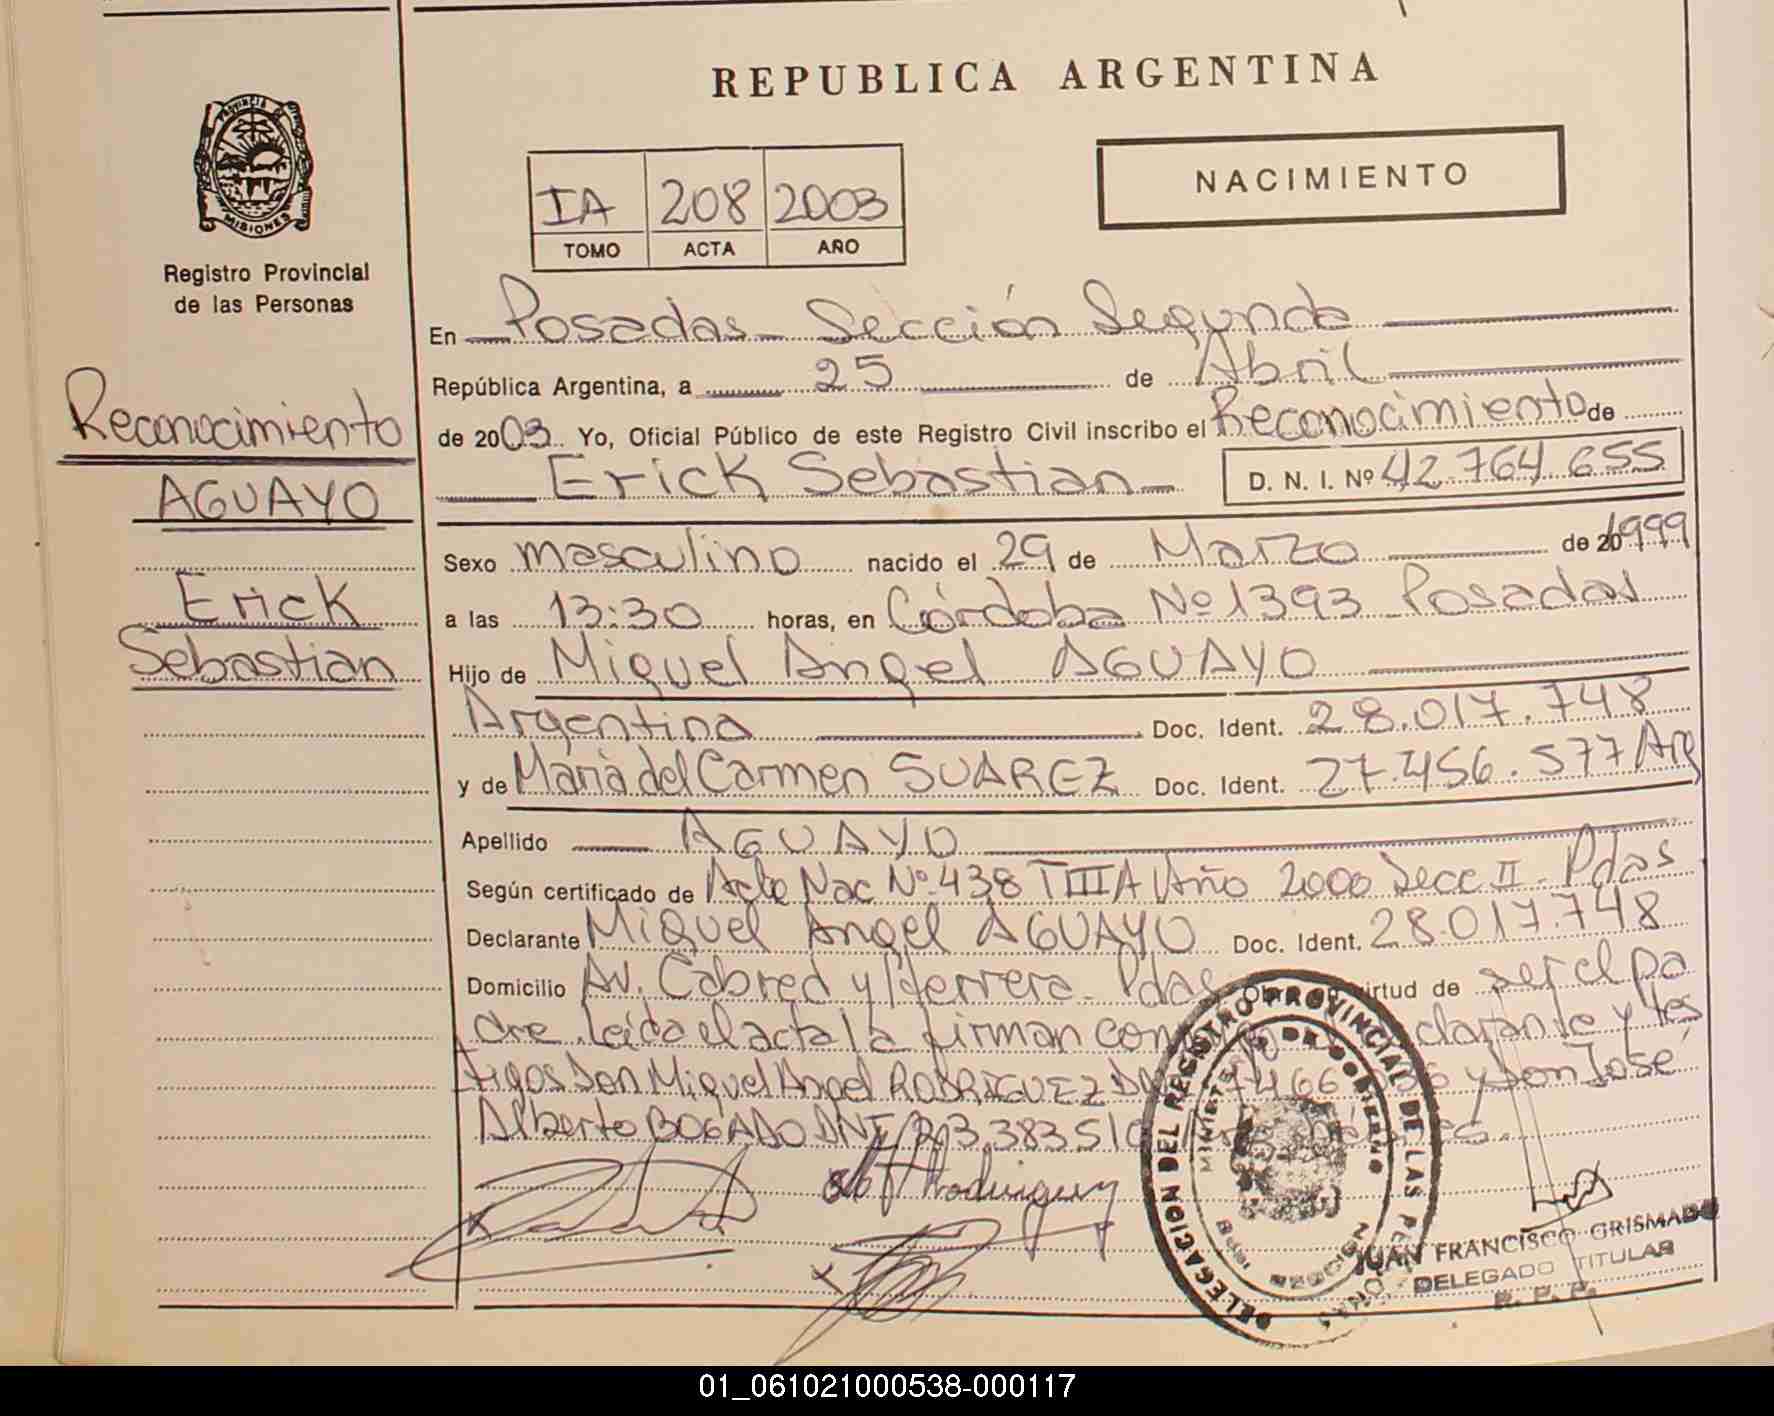 REPUBLICA ARGENTINA
NACIMIENTO
PROVINCIA DE MISIONES
Registro Provincial
de las Personas
IA 208 2003
TOMO ACTA AÑO
Reconocimiento
AGUAYO
Erick
Sebastian
En Posadas - Sección Segunda
República Argentina, a 25 de Abril
de 2003 Yo, Oficial Público de este Registro Civil inscribo el Reconocimiento de
Erick Sebastian D. N. I. Nº 42.764.655
Sexo masculino nacido el 29 de Marzo de 20 1999
a las 13:30 horas, en Córdoba Nº 1393 Posadas
Hijo de Miguel Angel AGUAYO
Argentina Doc. Ident. 28.017.748
y de Maria del Carmen SUAREZ Doc. Ident. 27.456.577 Arg
Apellido AGUAYO
Según certificado de Acta Nac Nº 438 T IIIA Año 2000 Secc II - Pdas
Declarante Miguel Angel AGUAYO Doc. Ident. 28.017.748
Domicilio Av. Cabred y Herrera - Pdas virtud de ser el pa
dre. Leída el acta la firman y tes
tigos Don Miguel Angel RODRIGUEZ y Don José
Alberto BOGADO DNI
DELEGACION DEL REGISTRO PROVINCIAL DE LAS PERSONAS
MINISTERIO DE GOBIERNO
JUAN FRANCISCO GRISMADO
DELEGADO TITULAR
R. P. P.
01_061021000538-000117